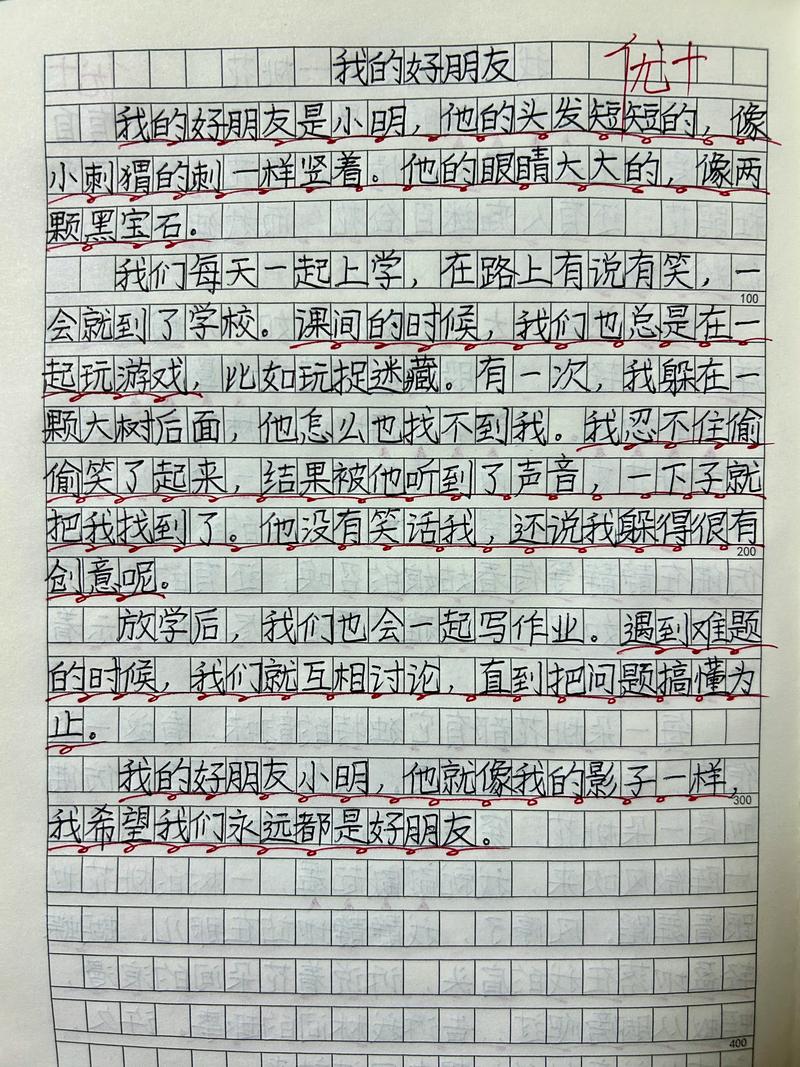 我的好朋友 优+
我的好朋友是小明，他的头发短短的，像
小刺猬的刺一样竖着。他的眼睛大大的，像两
颗黑宝石。
我们每天一起上学，在路上有说有笑，一
100
会就到了学校。课间的时候，我们也总是在一
起玩游戏，比如玩捉迷藏。有一次，我躲在一
颗大树后面，他怎么也找不到我。我忍不住偷
偷笑了起来，结果被他听到了声音，一下子就
把我找到了。他没有笑话我，还说我躲得很有
200
创意呢。
放学后，我们也会一起写作业。遇到难题
的时候，我们就互相讨论，直到把问题搞懂为
止。
我的好朋友小明，他就像我的影子一样，
300
我希望我们永远都是好朋友。
400